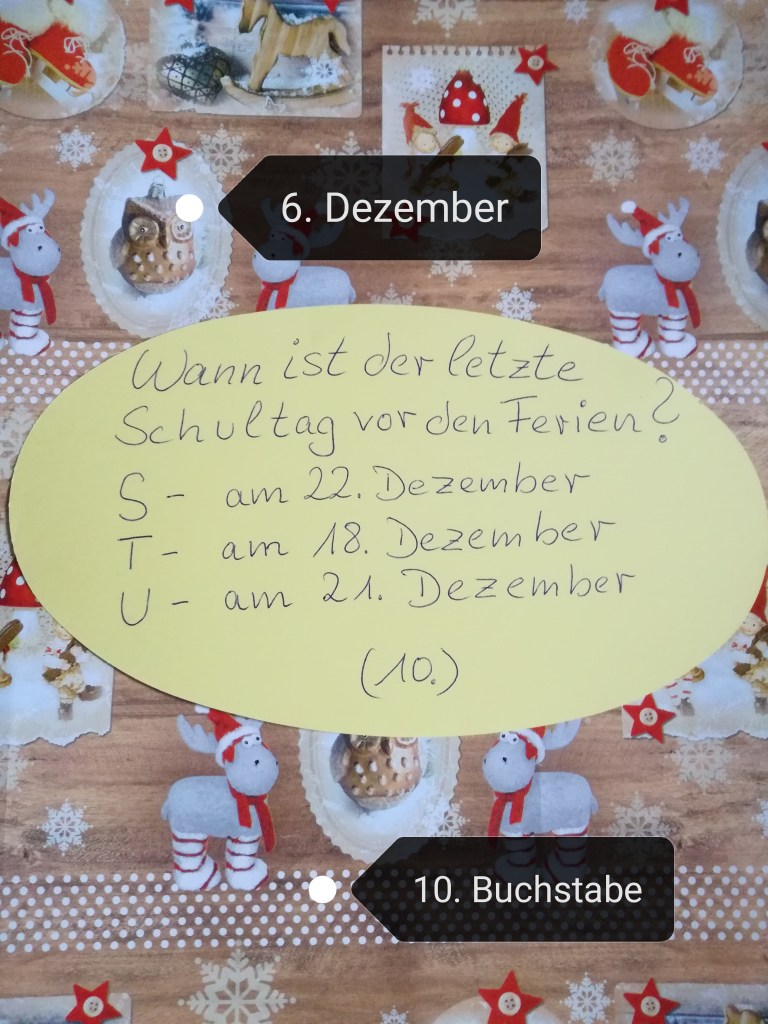 6. Dezember
Wann ist der letzte
Schultag vor den Ferien?
S - am 22. Dezember
T - am 18. Dezember
U - am 21. Dezember
(10.)
10. Buchstabe